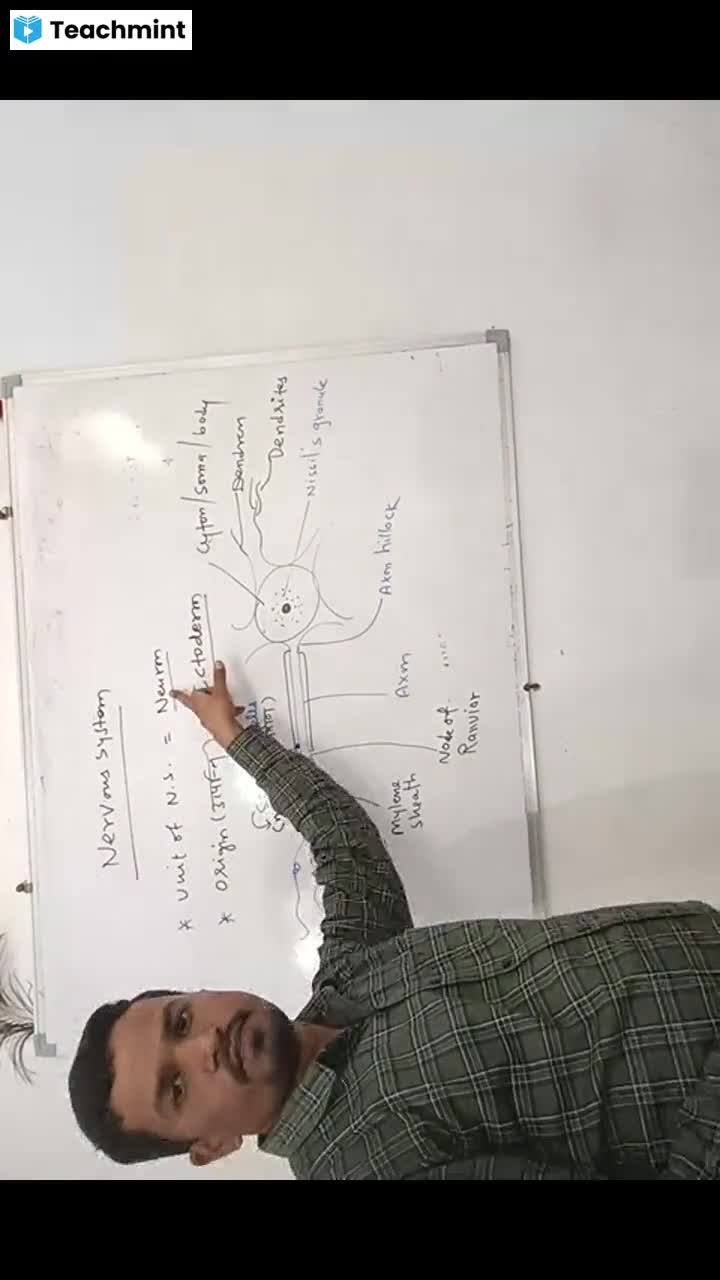 Teachmint
Nervous System
* Unit of N.S. = Neuron
* Origin (उत्पत्ति)
ctoderm
Cyton/Soma/body
Dendron
Dendrites
Nissil's granule
Axon hillock
Axon
Node of
Ranvior
Mylene
sheath